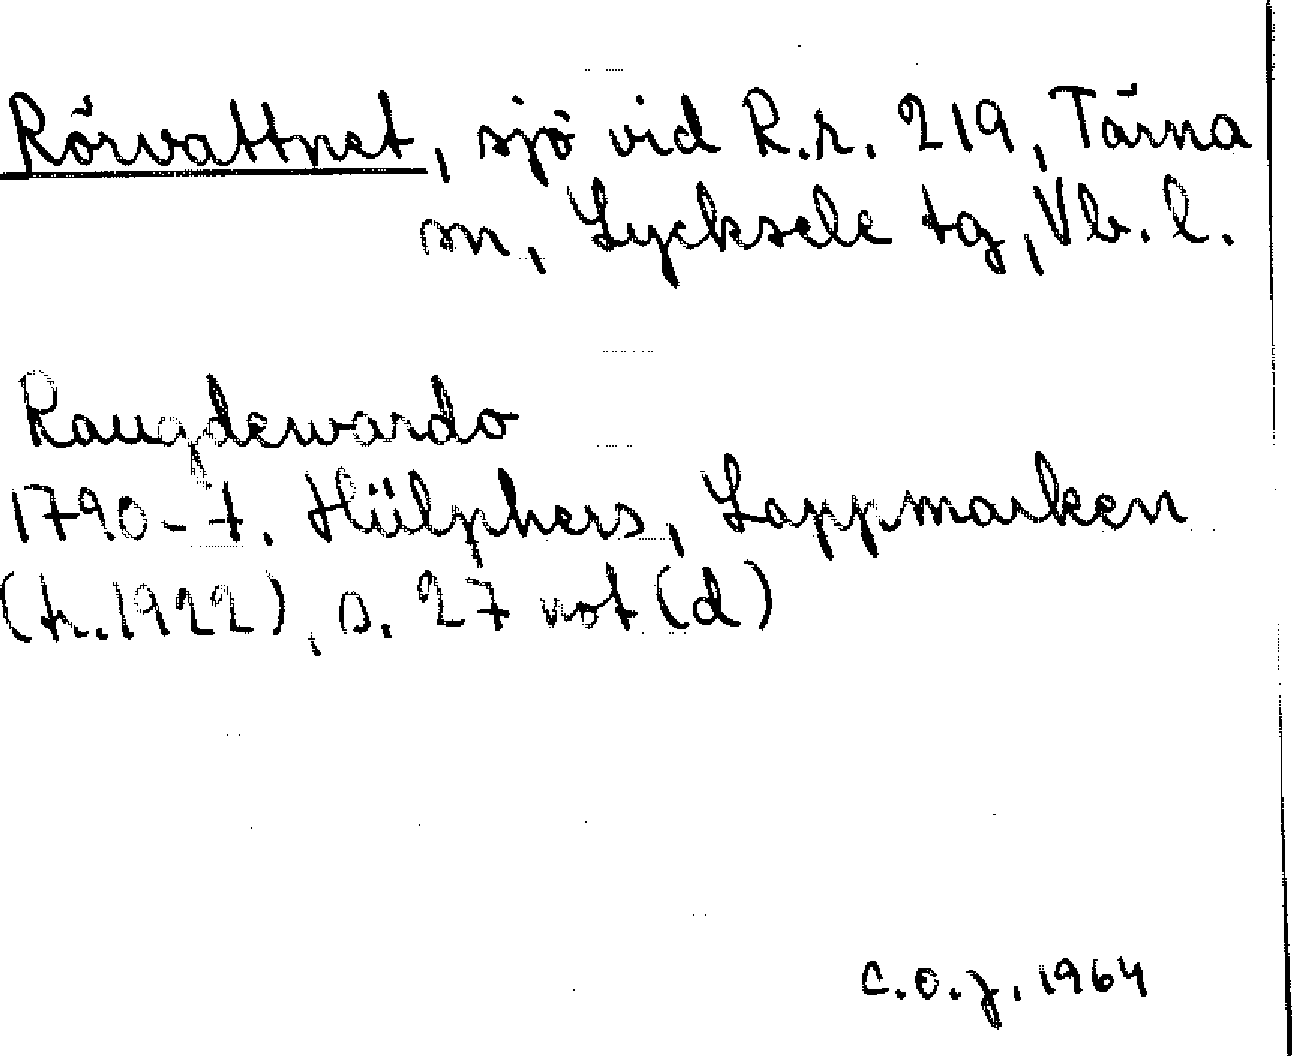 Rörvattnet, sjö vid R.r. 219, Tärna
sn, Lycksele tg, Vb. l.
Raugdewardo
1790-t. Hülphers, Lappmarken
(tr. 1922), s. 27 not (d)
C.O.J. 1964